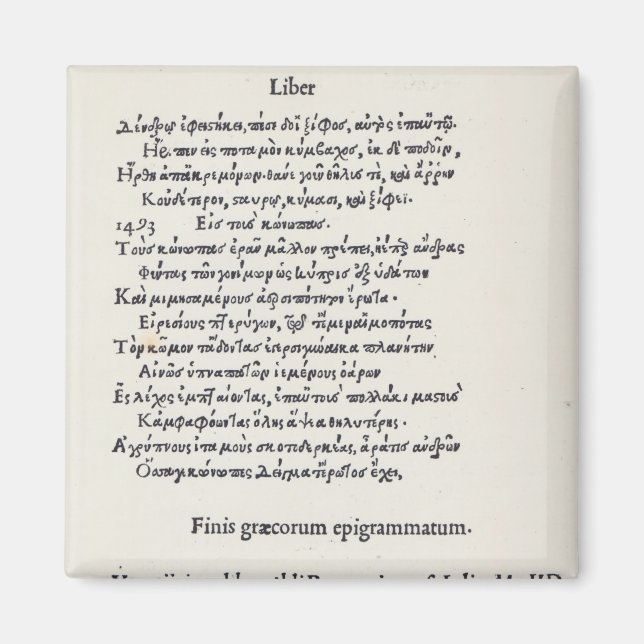 Liber
Δένδρῳ ἐφειστήκει, πέσε δοἱ ξίφος, αὐτὸς ἐπαὐτῷ.
Ἤριπεν εἰς ποταμὸν κύμβαχος, ἐκ δὲ ποδοῖν,
Ἤρθη κρεμόνων. θάνε γοῦν θῆλίς τε, καὶ ἄρρην
Κοὐδέτερον, σταυρῷ, κύμασι, καὶ ξίφεϊ.
1493 Εἰς τοὺς κώνωπας.
Τοὺς κώνωπας ἐρᾶν μᾶλλον πρέπει, ἠέπερ ἄνδρας
Φύντας τῶν γονίμων ὡς κύπρις ἐξ ὑδάτων
Καὶ μιμησαμένους ἀερσιπότητον ἔρωτα.
Εἰρεσίους πτερύγων,
Τὸν κῶμον τᾄδοντας ἐγερσιγύναικα πλανήτην
Αἰνῶς ὑπναπατῶν ἱεμένους ὀάρων
Ἐς λέχος ἐμπταίοντας, ἐπαὐτοῖς πολλάκι μαστοῖς
Κἀμφαφόωντας ὅλης ἅψεα θηλυτέρης.
Ἀγρύπνους ἰταμοὺς σκοτοδερκέας, ἆράτις ἀνδρῶν
κώνωπες δεῖγματἔρωτος ἔχει,
Finis græcorum epigrammatum.